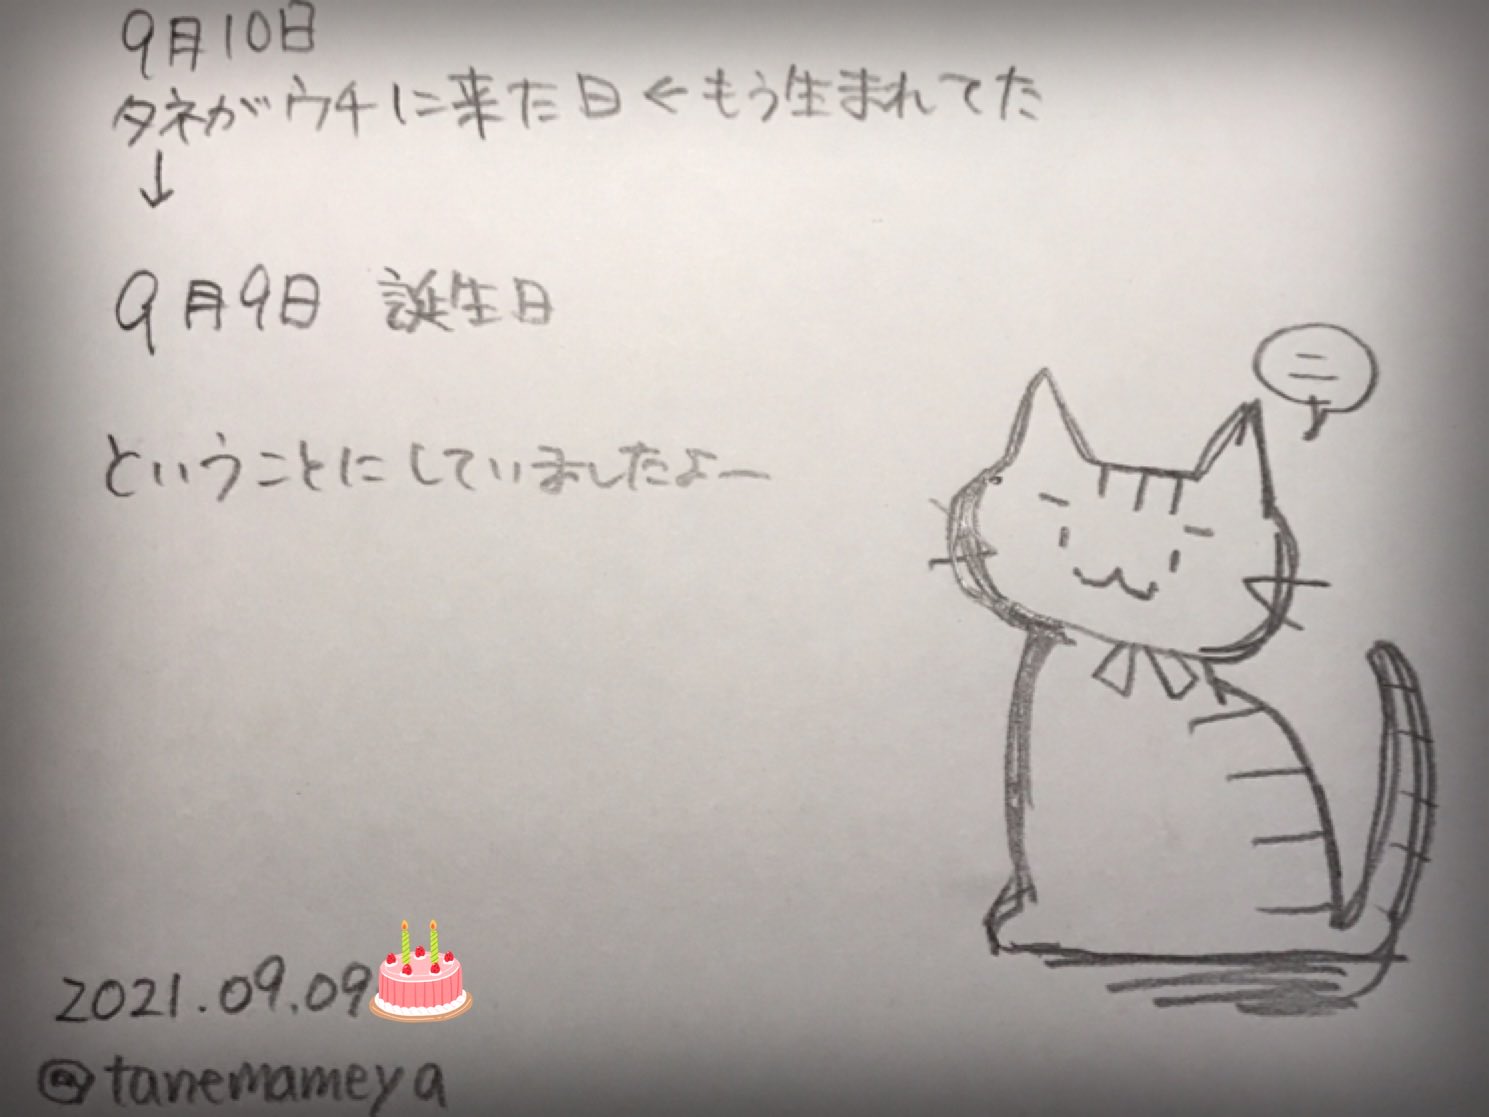 9月10日
タネがウチに来た日←もう生まれてた
↓
9月9日 誕生日
ということにしていましたよー
ニ
2021.09.09
@tanemameya